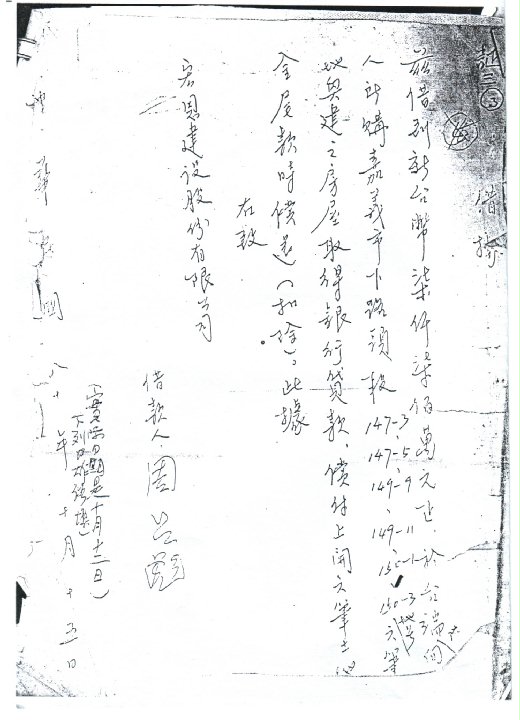 証三③
借據
茲借到新台幣柒仟柒佰萬元正，於台端個
人所購嘉義市下路頭段147-3、147-5、149-9、149-11、150-1、150-3地號六筆土
地興建之房屋取得銀行貸款、償付上開六筆土地
金尾款時償還（扣除）。此據
右致
宏國建設股份有限公司
借款人 周
（實際日期是十月十二日）
國八十年十月十五日